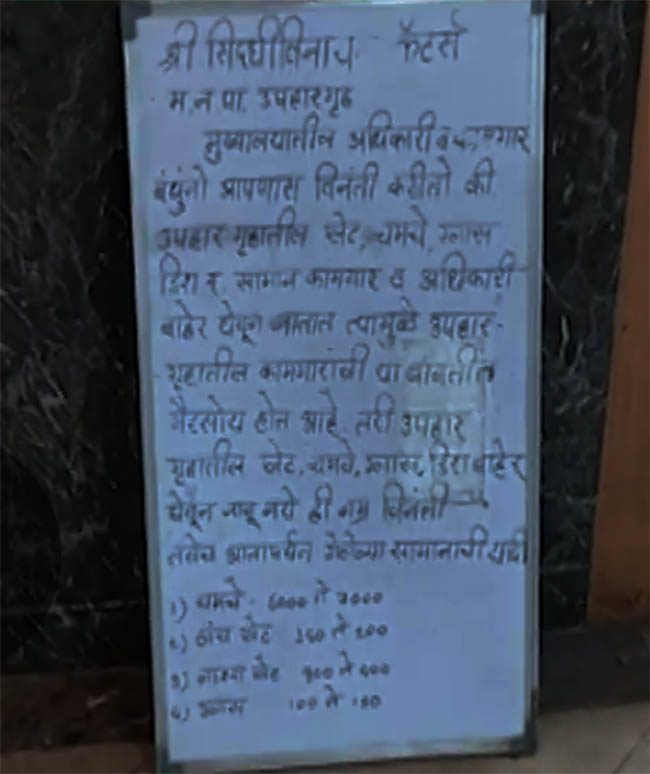 श्री सिध्दीविनाय कॅटर्स
म.न.पा. उपहारगृह
मुख्यालयातील अधिकारी व कामगार
बंधुंनो आपणास विनंती करीतो की
उपहार गृहातील प्लेट, चमचे, ग्लास
डिश इ. सामान कामगार व अधिकारी
बाहेर घेवून जातात त्यामुळे उपहार-
गृहातील कामगारांची या बाबतीत
गैरसोय होत आहे. तरी उपहार
गृहातील प्लेट, चमचे, ग्लास, डिश बाहेर
घेवून जावू नये ही नम्र विनंती
तसेच आतापर्यंत गेलेल्या सामानाची यादी
१) चमचे -
२) लंच प्लेट
३) नाश्ता प्लेट
४) ग्लास